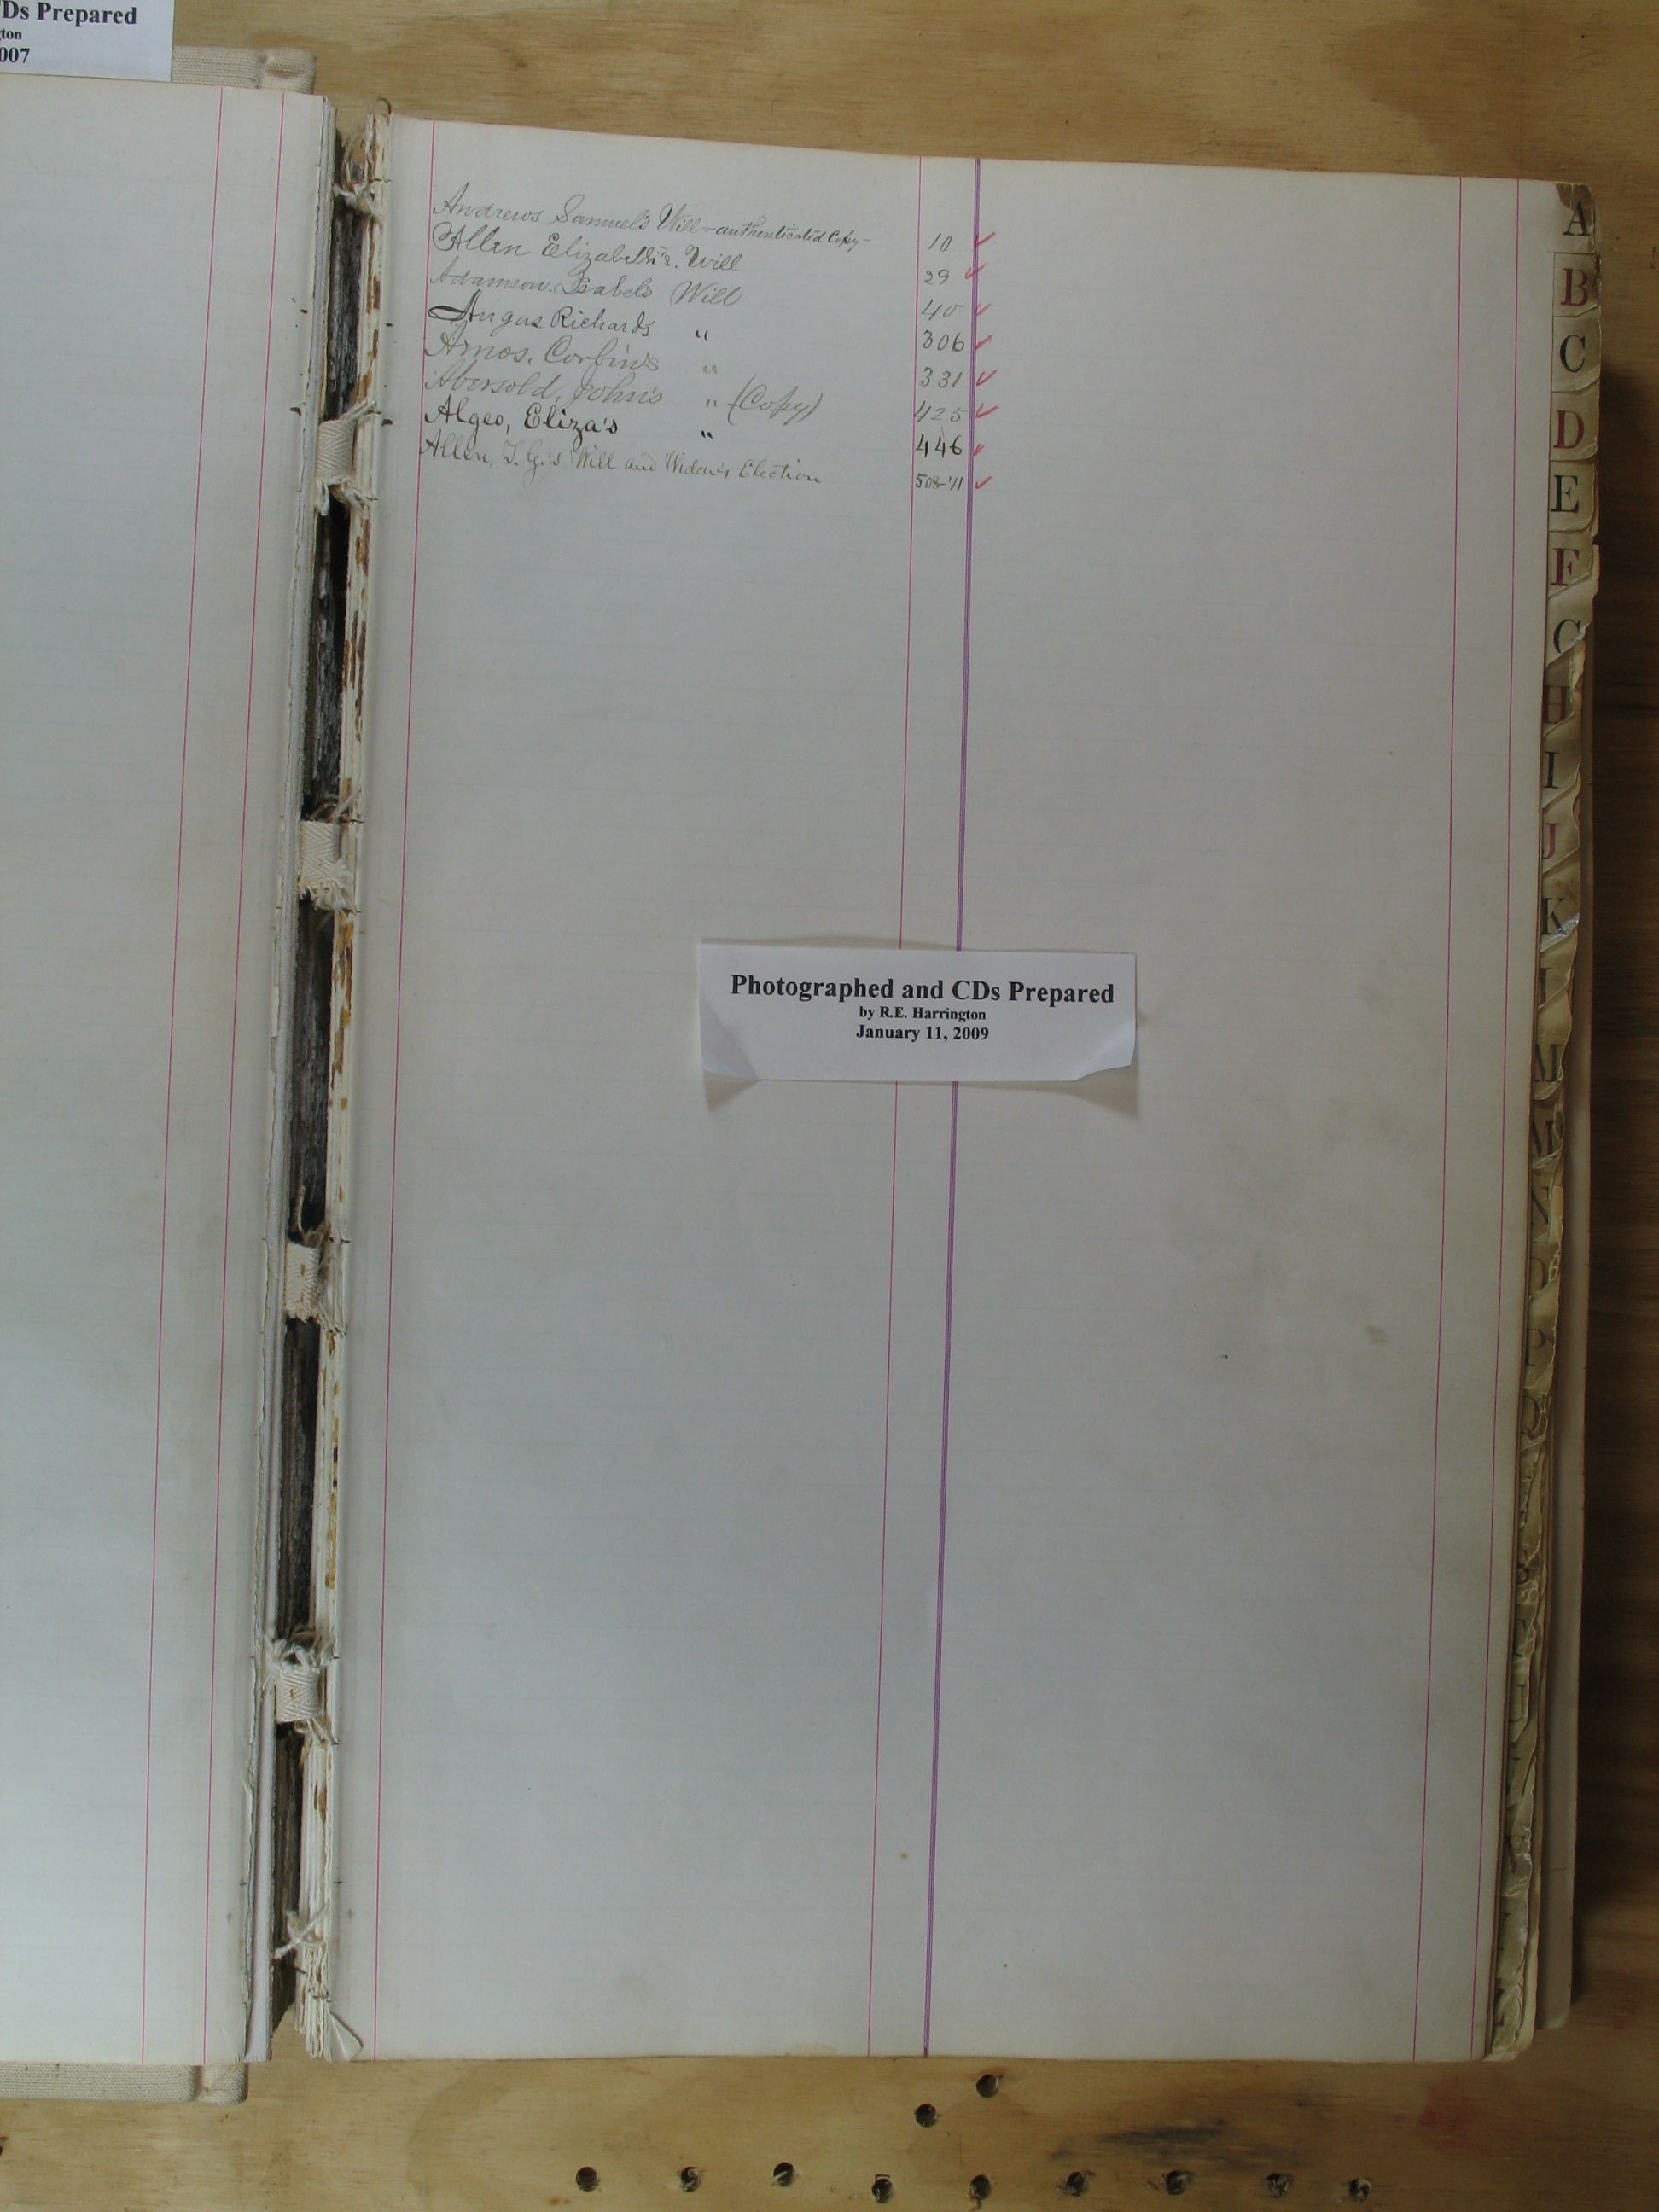 Ds Prepared
gton
007
Andrews Samuel's Will - authenticated Copy - 10
Allen Elizabeth's. Will 29
Adamson. Isabels Will 40
Angus Richards " 306
Amos. Corbin's " 331
Abersold, John's " (Copy) 425
Algeo, Eliza's " 446
Allen, T. G.'s Will and Widow's Election 508-'11
Photographed and CDs Prepared
by R.E. Harrington
January 11, 2009
A
B
C
D
E
F
G
H
I
J
K
L
M
Mc
N
O
P
Q